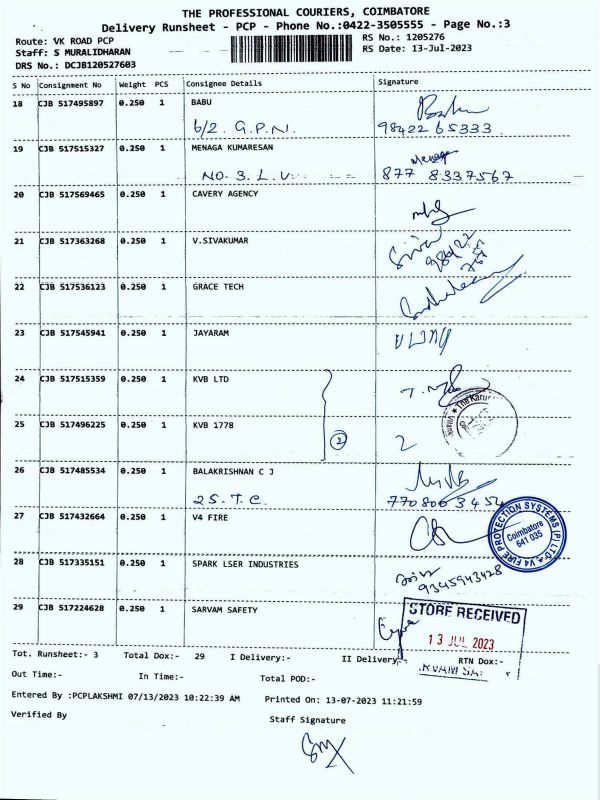 THE PROFESSIONAL COURIERS, COIMBATORE
Delivery Runsheet - PCP - Phone No.:0422-3505555 - Page No.:3
Route: VK ROAD PCP RS No.: 1205276
Staff: S MURALIDHARAN RS Date: 13-Jul-2023
DRS No.: DCJB120527603
S No Consignment No Weight PCS Consignee Details Signature
18 CJB 517495897 0.250 1 BABU
6/2. G.P.N. 98422 65333
19 CJB 517515327 0.250 1 MENAGA KUMARESAN Menaga
NO. 3. L.V 877 8337567
20 CJB 517569465 0.250 1 CAVERY AGENCY
21 CJB 517363268 0.250 1 V.SIVAKUMAR Siva 98422
22 CJB 517536123 0.250 1 GRACE TECH
23 CJB 517545941 0.250 1 JAYARAM
24 CJB 517515359 0.250 1 KVB LTD
25 CJB 517496225 0.250 1 KVB 1778 2 2
26 CJB 517485534 0.250 1 BALAKRISHNAN C J
2S. T. C. 770806 3454
27 CJB 517432664 0.250 1 V4 FIRE
V4 FIRE PROTECTION SYSTEMS (P) LTD
Coimbatore
641 035
28 CJB 517335151 0.250 1 SPARK LSER INDUSTRIES
9345943428
29 CJB 517224628 0.250 1 SARVAM SAFETY
STORE RECEIVED
13 JUL 2023
Tot. Runsheet:- 3 Total Dox:- 29 I Delivery:- II Delivery:- RTN Dox:-
Out Time:- In Time:- Total POD:-
Entered By :PCPLAKSHMI 07/13/2023 10:22:39 AM Printed On: 13-07-2023 11:21:59
Verified By Staff Signature